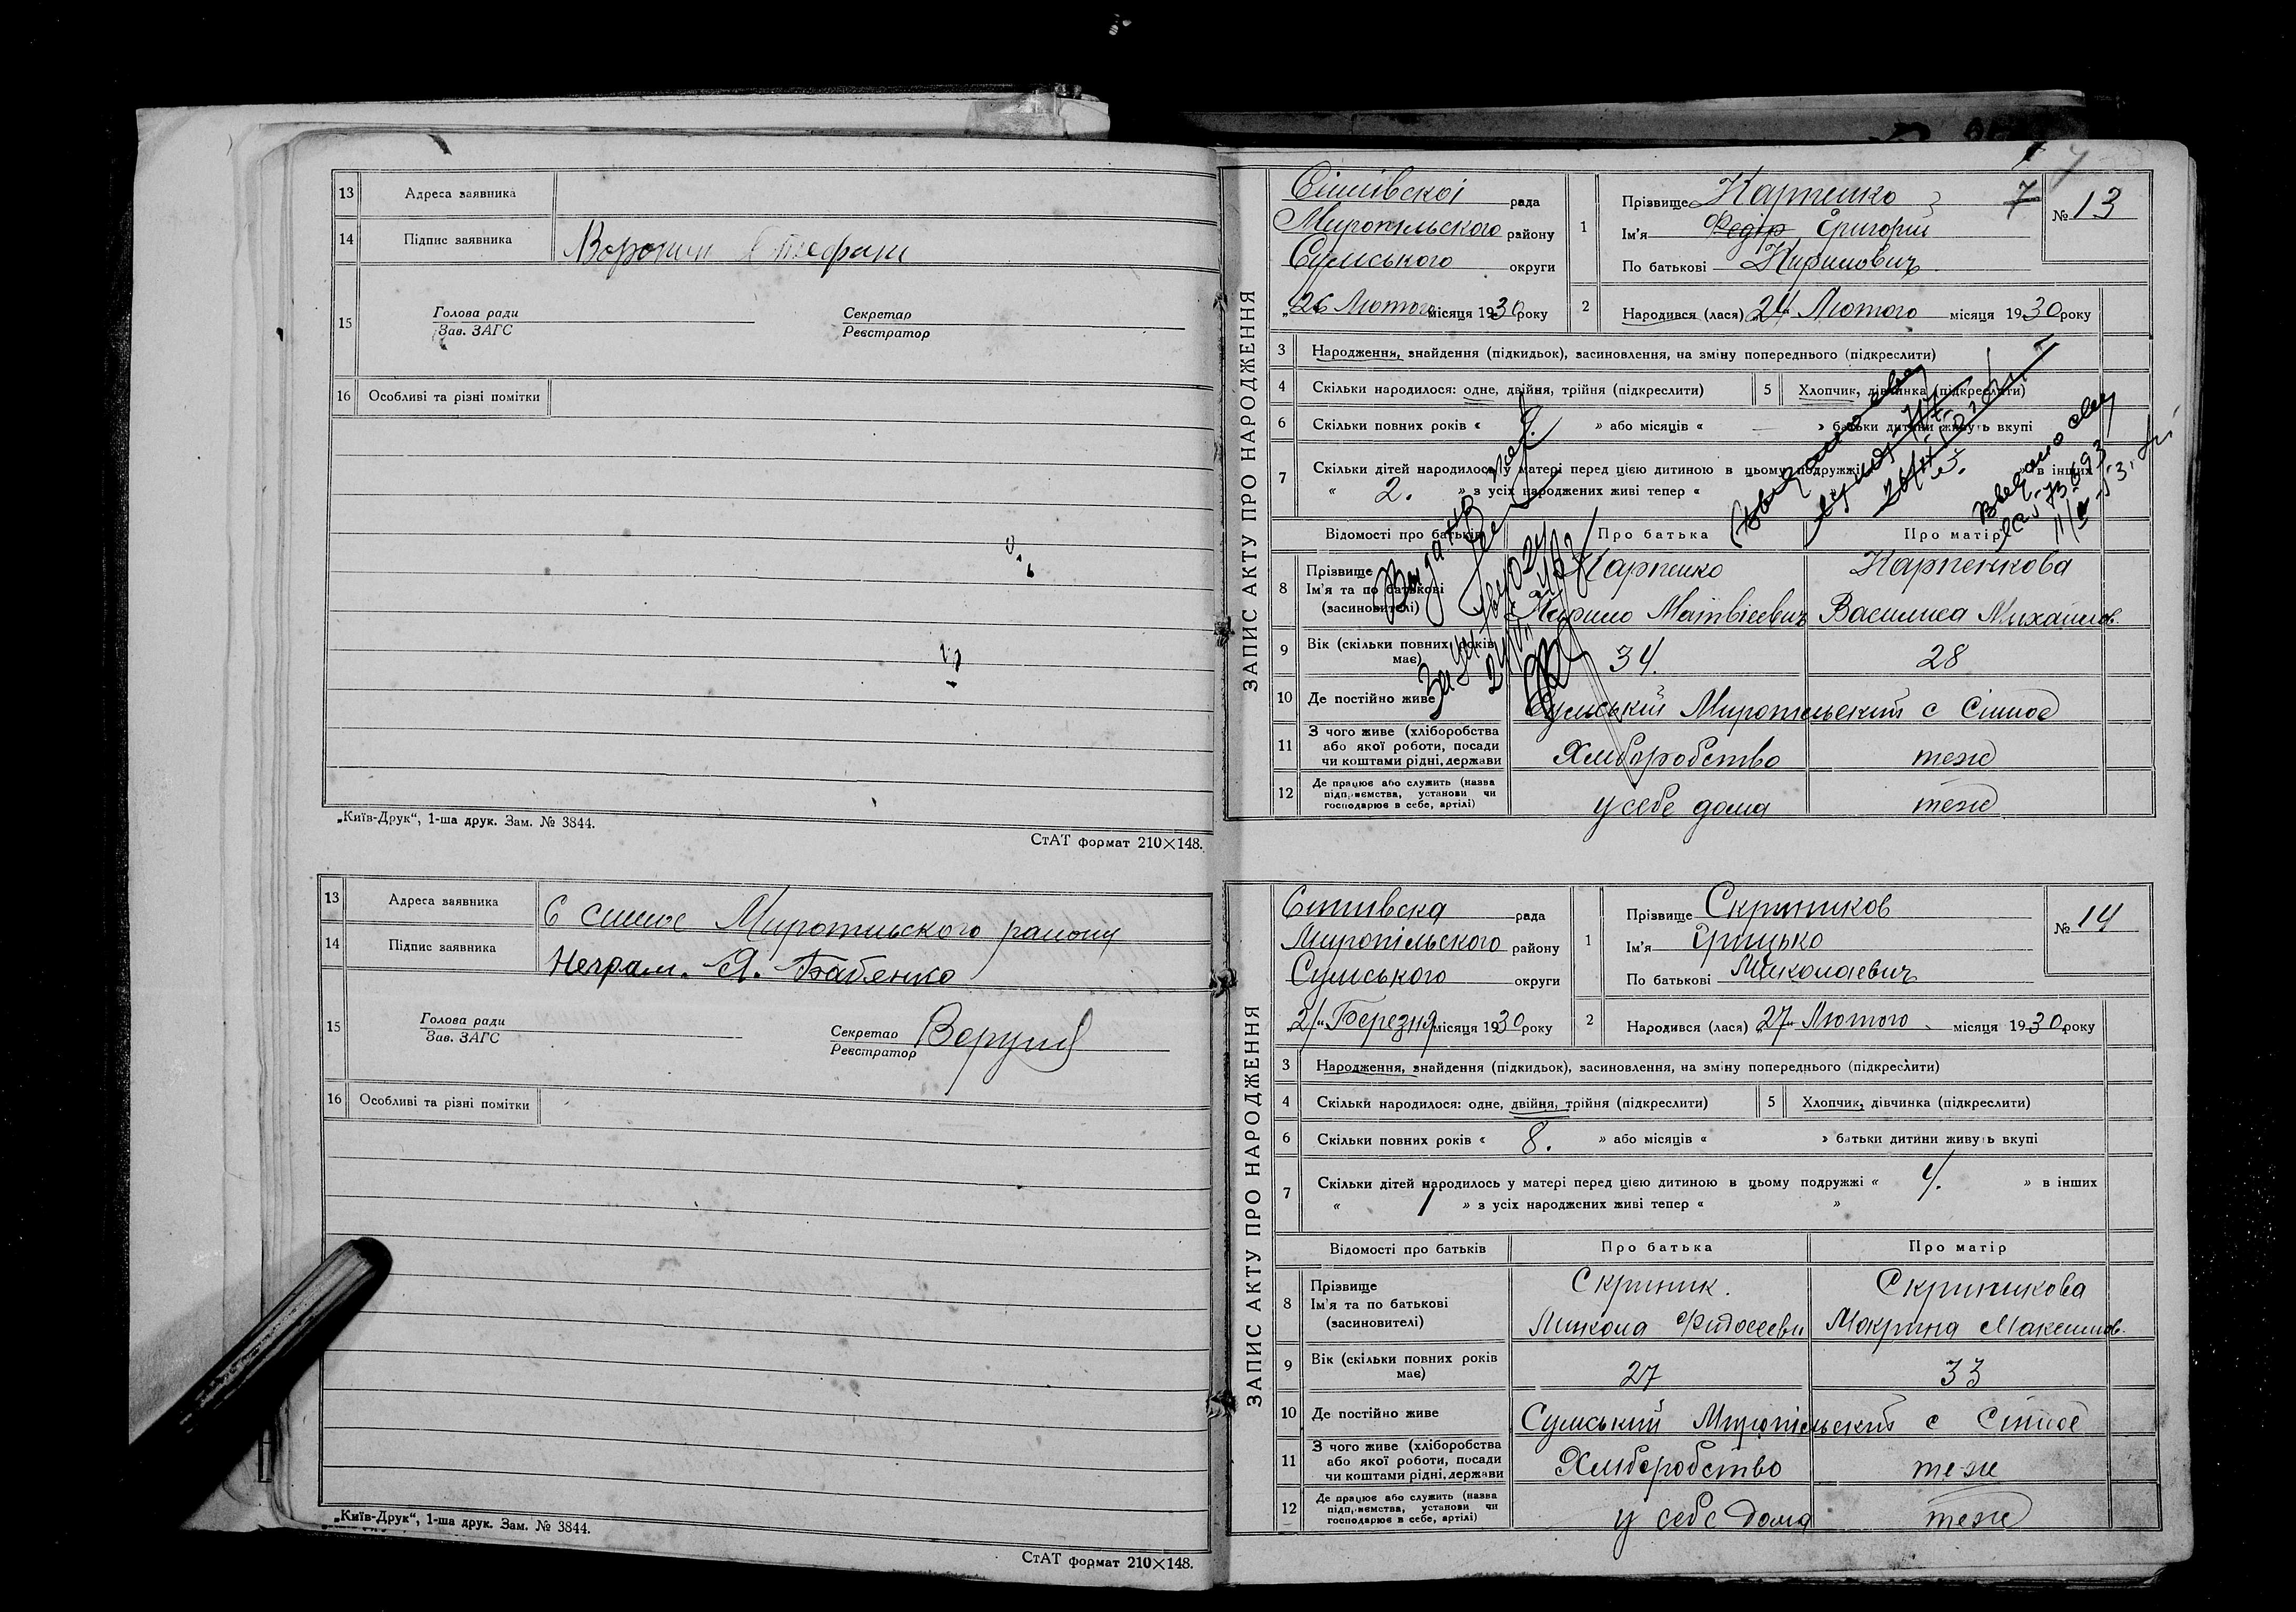 13 Адреса заявника
14 Підпис заявника Воронин Стефан
15 Голова ради
Зав. ЗАГС
Секретар
Реєстратор
16 Особливі та різні помітки
„Київ-Друк“, 1-ша друк. Зам. № 3844.
СтАТ формат 210×148.
13 Адреса заявника С Синне Миропільского району
14 Підпис заявника Неграм. Я. Бабенко
15 Голова ради
Зав. ЗАГС
Секретар
Реєстратор
16 Особливі та різні помітки
„Київ-Друк“, 1-ша друк. Зам. № 3844.
СтАТ формат 210×148.
ЗАПИС АКТУ ПРО НАРОДЖЕННЯ
рада
Миропільського району
Сумського округи
„26 Лютого місяця 1930 року
7
№ 13
1 Прізвище Карпенко
Ім'я Федір Григорий
По батькові Кирилович
2 Народився (лася) „24“ Лютого місяця 1930 року
3 Народження, знайдення (підкидьок), засиновлення, на зміну попереднього (підкреслити)
4 Скільки народилося: одне, двійня, трійня (підкреслити)
5 Хлопчик, дівчинка (підкреслити)
6 Скільки повних років « » або місяців « — » батьки дитини живуть вкупі
7 Скільки дітей народилось у матері перед цією дитиною в цьому подружжі « » в інших
« 2. » з усіх народжених живі тепер « »
Відомості про батьків Про батька Про матір
8 Прізвище Карпенко Карпенкова
Ім'я та по батькові
(засновителі) Кирило Матвієвич Василиса Михайлов.
9 Вік (скільки повних років має) 34. 28
10 Де постійно живе Сумський Миропільский с
11 З чого живе (хліборобства
або якої роботи, посади
чи коштами рідні, держави Хліборобство теж
12 Де працює або служить (назва
підприємства, установи чи
господарює в себе, артілі) у себе дома теж
ЗАПИС АКТУ ПРО НАРОДЖЕННЯ
рада
Миропільского району
Сумського округи
Березня місяця 1930 року
№ 14
1 Прізвище Скриников
Ім'я Грицько
По батькові Миколаевич
2 Народився (лася) „27“ Лютого місяця 1930 року
3 Народження, знайдення (підкидьок), засиновлення, на зміну попереднього (підкреслити)
4 Скільки народилося: одне, двійня, трійня (підкреслити)
5 Хлопчик, дівчинка (підкреслити)
6 Скільки повних років « 8. » або місяців « » батьки дитини живуть вкупі
7 Скільки дітей народилось у матері перед цією дитиною в цьому подружжі « 4. » в інших
« 1 » з усіх народжених живі тепер « »
Відомості про батьків Про батька Про матір
8 Прізвище Скриник. Скриникова
Ім'я та по батькові
(засиновителі) Микола Макрина Максимов.
9 Вік (скільки повних років має) 27 33
10 Де постійно живе Сумський Миропільський с
11 З чого живе (хліборобства
або якої роботи, посади
чи коштами рідні, держави Хліборобство теж
12 Де працює або служить (назва
підприємства, установи чи
господарює в себе, артілі) у себе дома теж